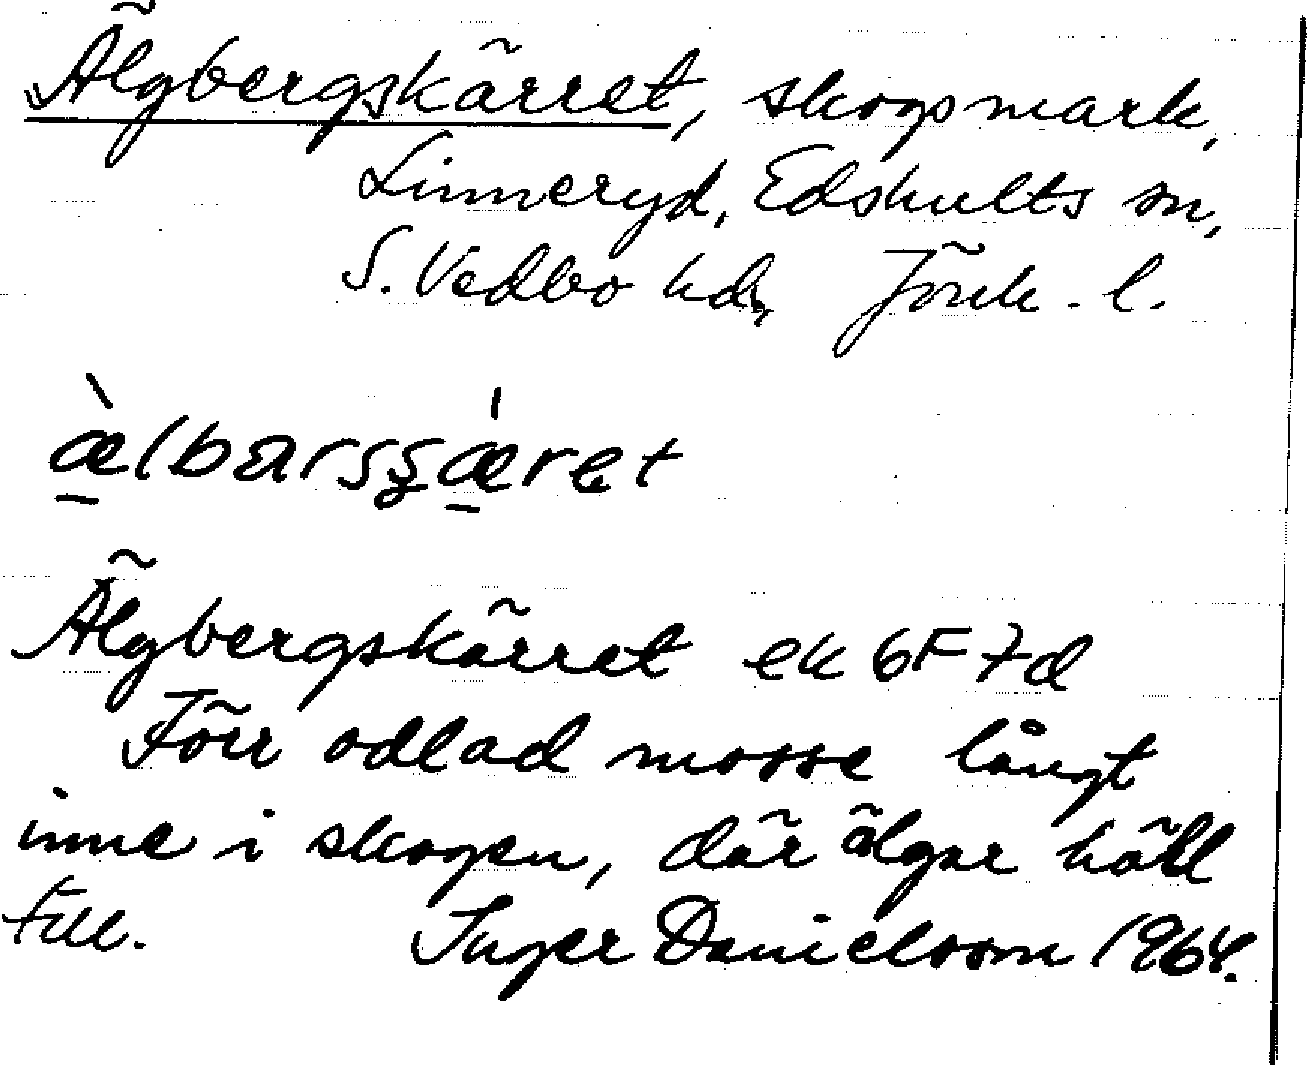 Älgbergskärret, skogsmark,
Linneryd, Edshults sn,
S. Vedbo hd, Jönk. l.
æ̀lbarsʂæ̀ret
Älgbergskärret ek 6F 7d
Förr odlad mosse långt
inne i skogen, där älgar höll
till. Inger Danielsson 1964.